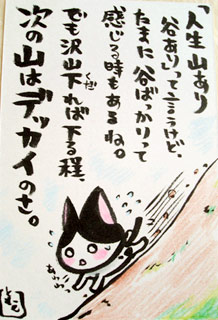 「人生山あり
谷あり」って言うけど、
たまに谷ばっかりって
感じる時もあるね。
でも沢山下れば下る程、
くだ
次の山はデッカイのさ。
あわわ